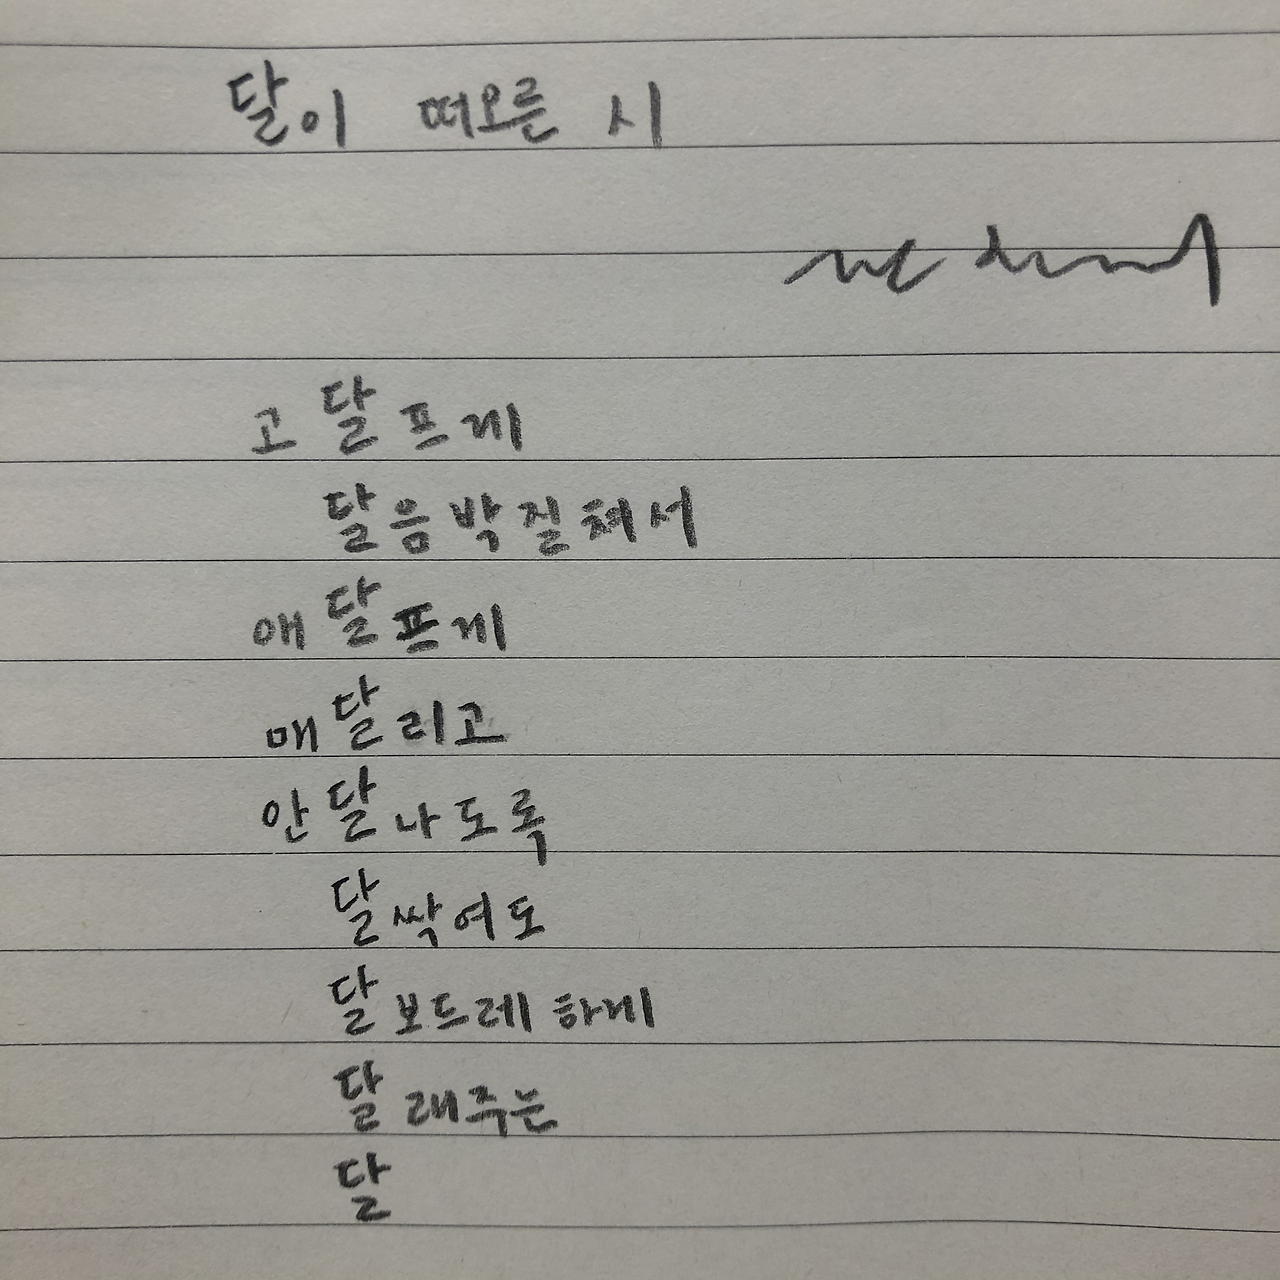 달이 떠오른 시
고달프게
달음박질쳐서
애달프게
매달리고
안달나도록
달싹여도
달보드레하게
달래주는
달